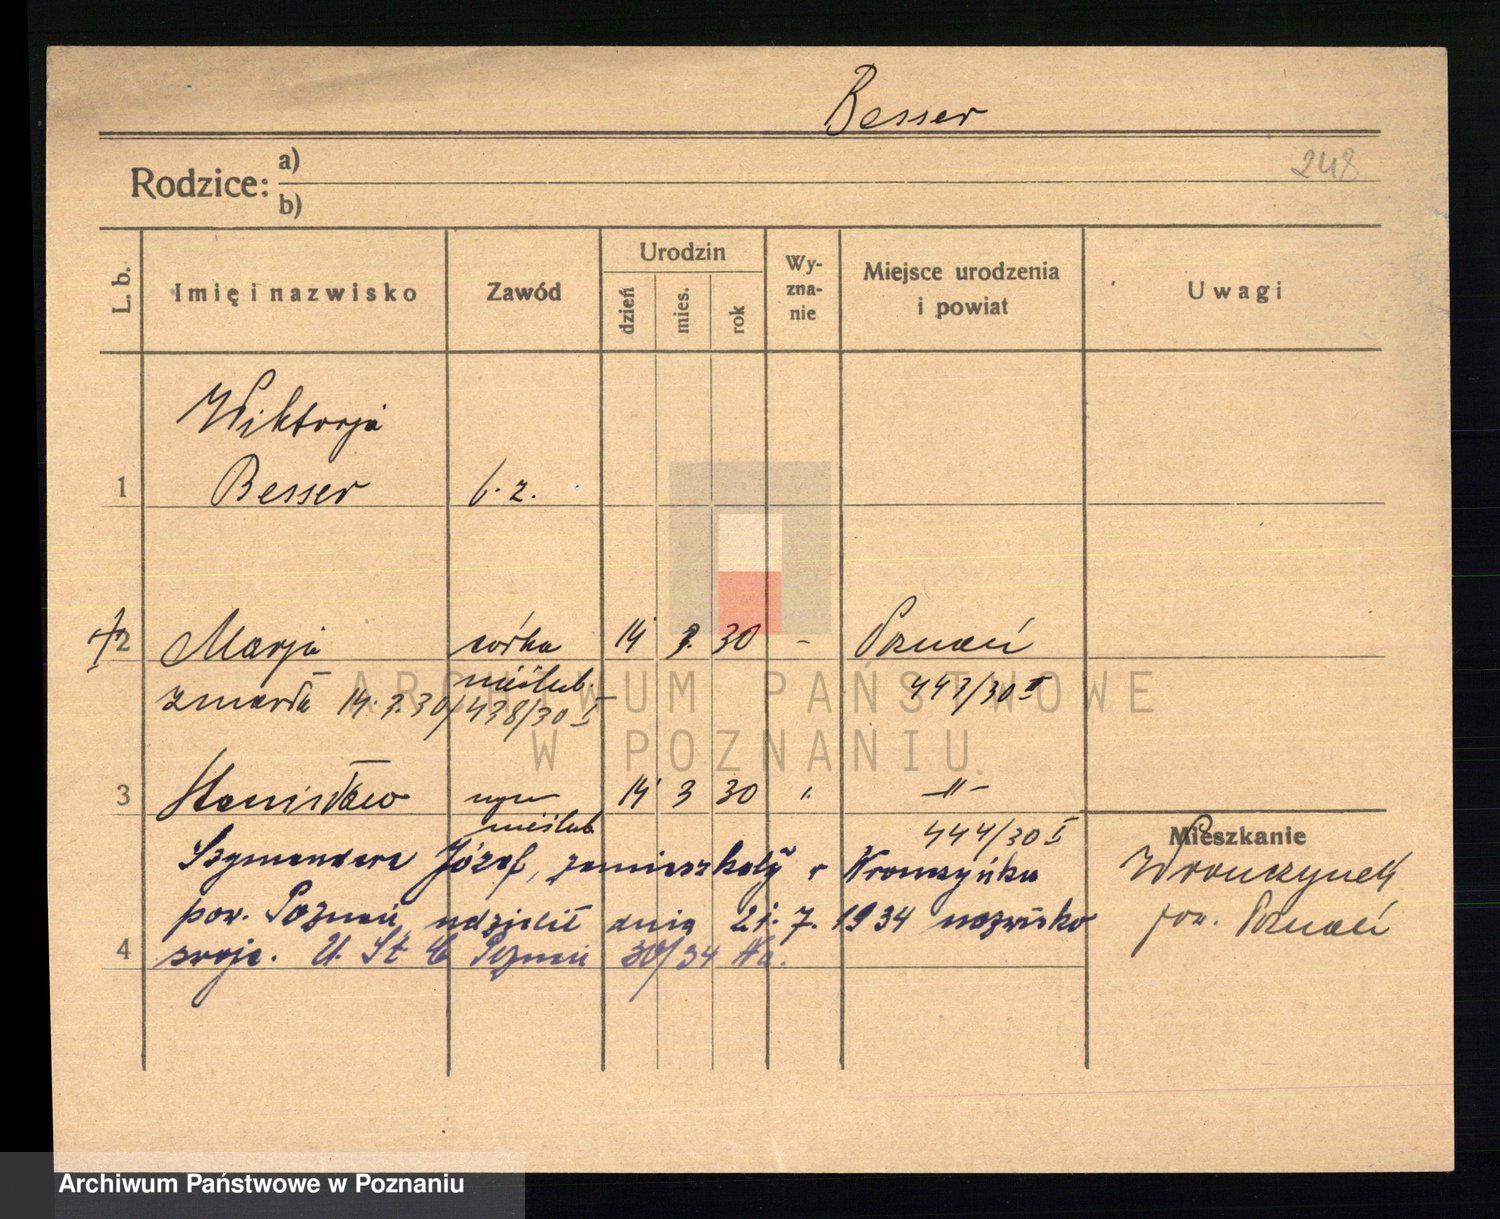 Besser
248
Rodzice: a)
b)
L. b.
Imię i nazwisko
Zawód
Urodzin
dzień
mies.
rok
Wy-
zna-
nie
Miejsce urodzenia
i powiat
Uwagi
Wiktorja
1 Besser b. z.
2 Marja córka 14 3. 30 - Poznań
nieślub.
zmarła 14.3.30/438/30 I 443/30 I
3 Stanisław syn 14 3 30 " -"-
nieślub 444/30 I
Mieszkanie
Szymandera Józef, zamieszkały w Wronczynku
Wronczynek
pow. Poznań, udzielił dnia 21. 7. 1934 nazwisko
pow. Poznań
4 swoje. U. St. C Poznań 30/34
ARCHIWUM PAŃSTWOWE
W POZNANIU
Archiwum Państwowe w Poznaniu